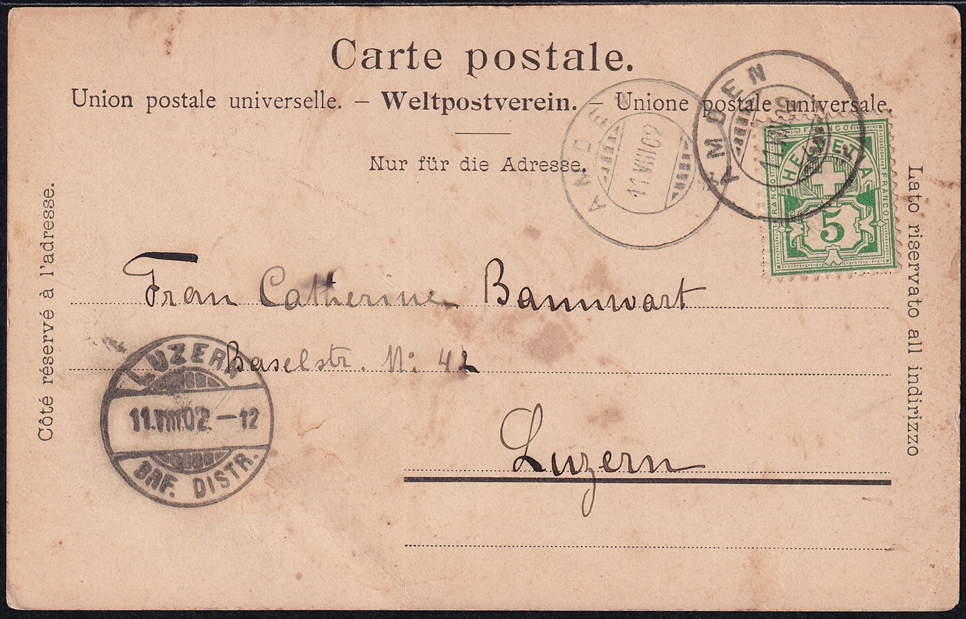 Carte postale.
Union postale universelle. – Weltpostverein. – Unione postale universale.
Nur für die Adresse.
Côté réservé à l'adresse.
Lato riservato all indirizzo
AMDEN
11.VIII.02
AMDEN
11.VIII.02
FRANCO
FRANCO
FRANCO
HELVETIA
5
Frau Catherine Bannwart
Baselstr. No: 42
Luzern
LUZERN
11.VIII.02.–12
BRF. DISTR.